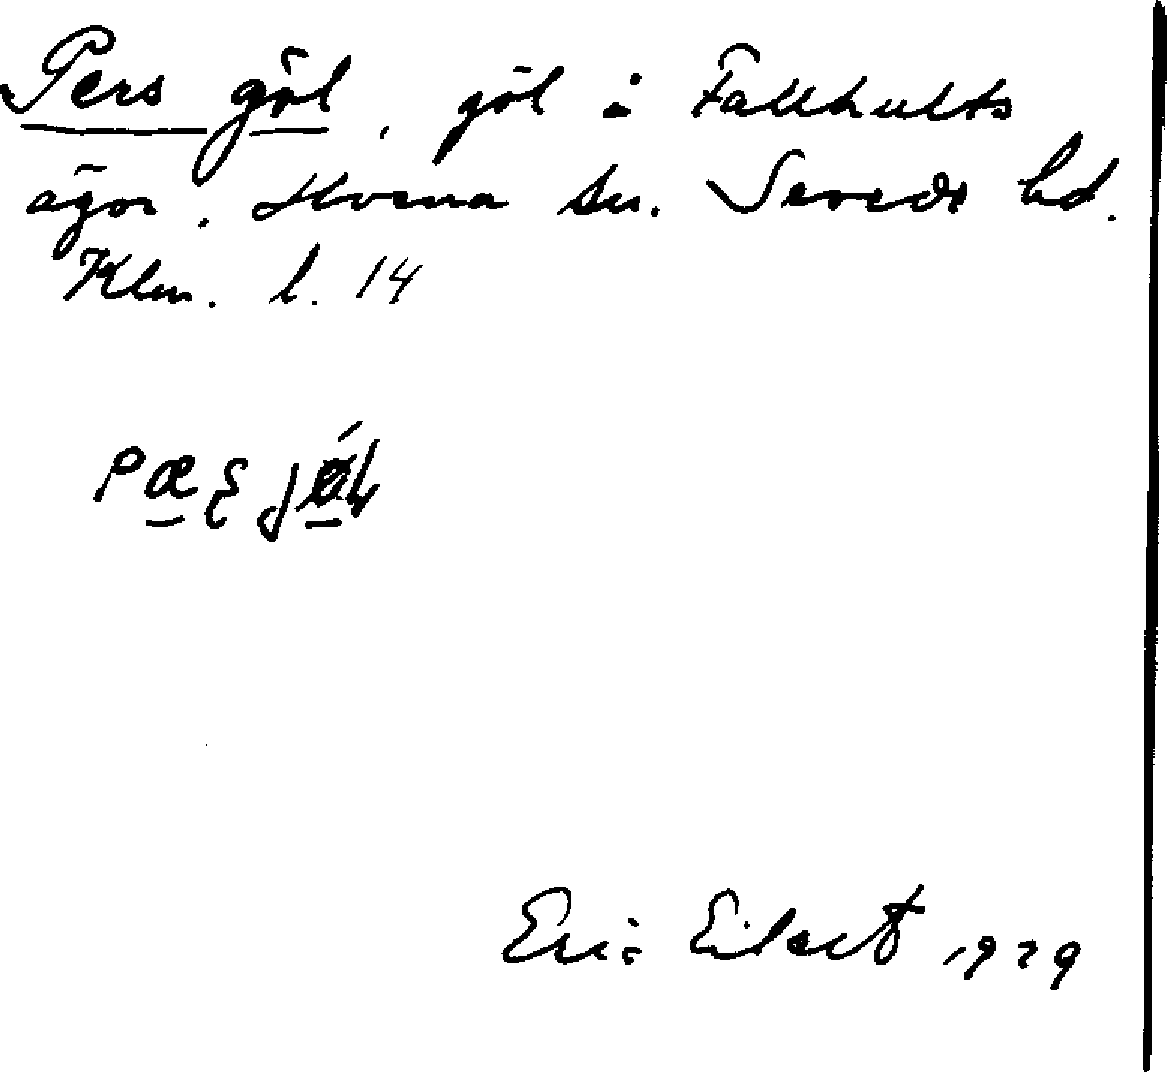 Pers göl, göl å Fallhults
ägor. Hvena sn. Sevede hd.
Klm. l. 14
Eric Eilert 1929